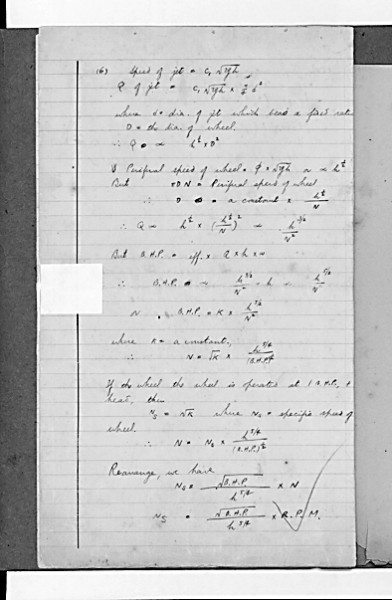 (6) Speed of jet = c₁ √2gh
Q of jet = c₁ √2gh × π/4 d²
where d = dia. of jet which bears a fixed ratio
D = the dia. of wheel.
∴ Q ∝ h^½ × D²
Periferal speed of wheel = φ × √2gh ∝ h^½
But πDN = Periferal speed of wheel
∴ D = a constant × h^½/N
∴ Q ∝ h^½ × (h^½/N)² ∝ h^3/2/N²
But B.H.P. = eff. × Q × h × w
∴ B.H.P. ∝ h^3/2/N² × h ∝ h^5/2/N²
∴ B.H.P. = K × h^5/2/N²
where K = a constant,
∴ N = √K × h^5/4/(B.H.P.)^½
If the wheel is operated at 1 B.H.P. +
head, then
Ns = √K where Ns = specific speed of
wheel.
∴ N = Ns × h^5/4/(B.H.P.)^½
Rearrange, we have
Ns = √B.H.P./h^5/4 × N
Ns = √B.H.P./h^5/4 × R.P.M.